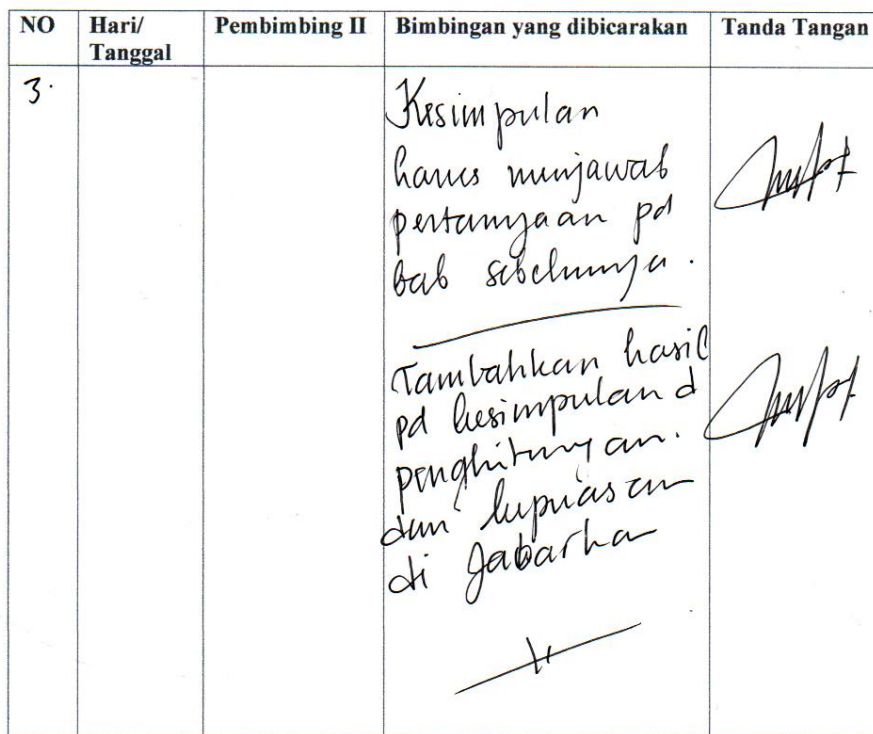 NO Hari/ Pembimbing II Bimbingan yang dibicarakan Tanda Tangan
Tanggal
3.
Kesimpulan
harus menjawab
pertanyaan pd
bab sebelumnya.
Tambahkan hasil
pd kesimpulan d
penghitungan.
dan kepuasan
di Jabarkan